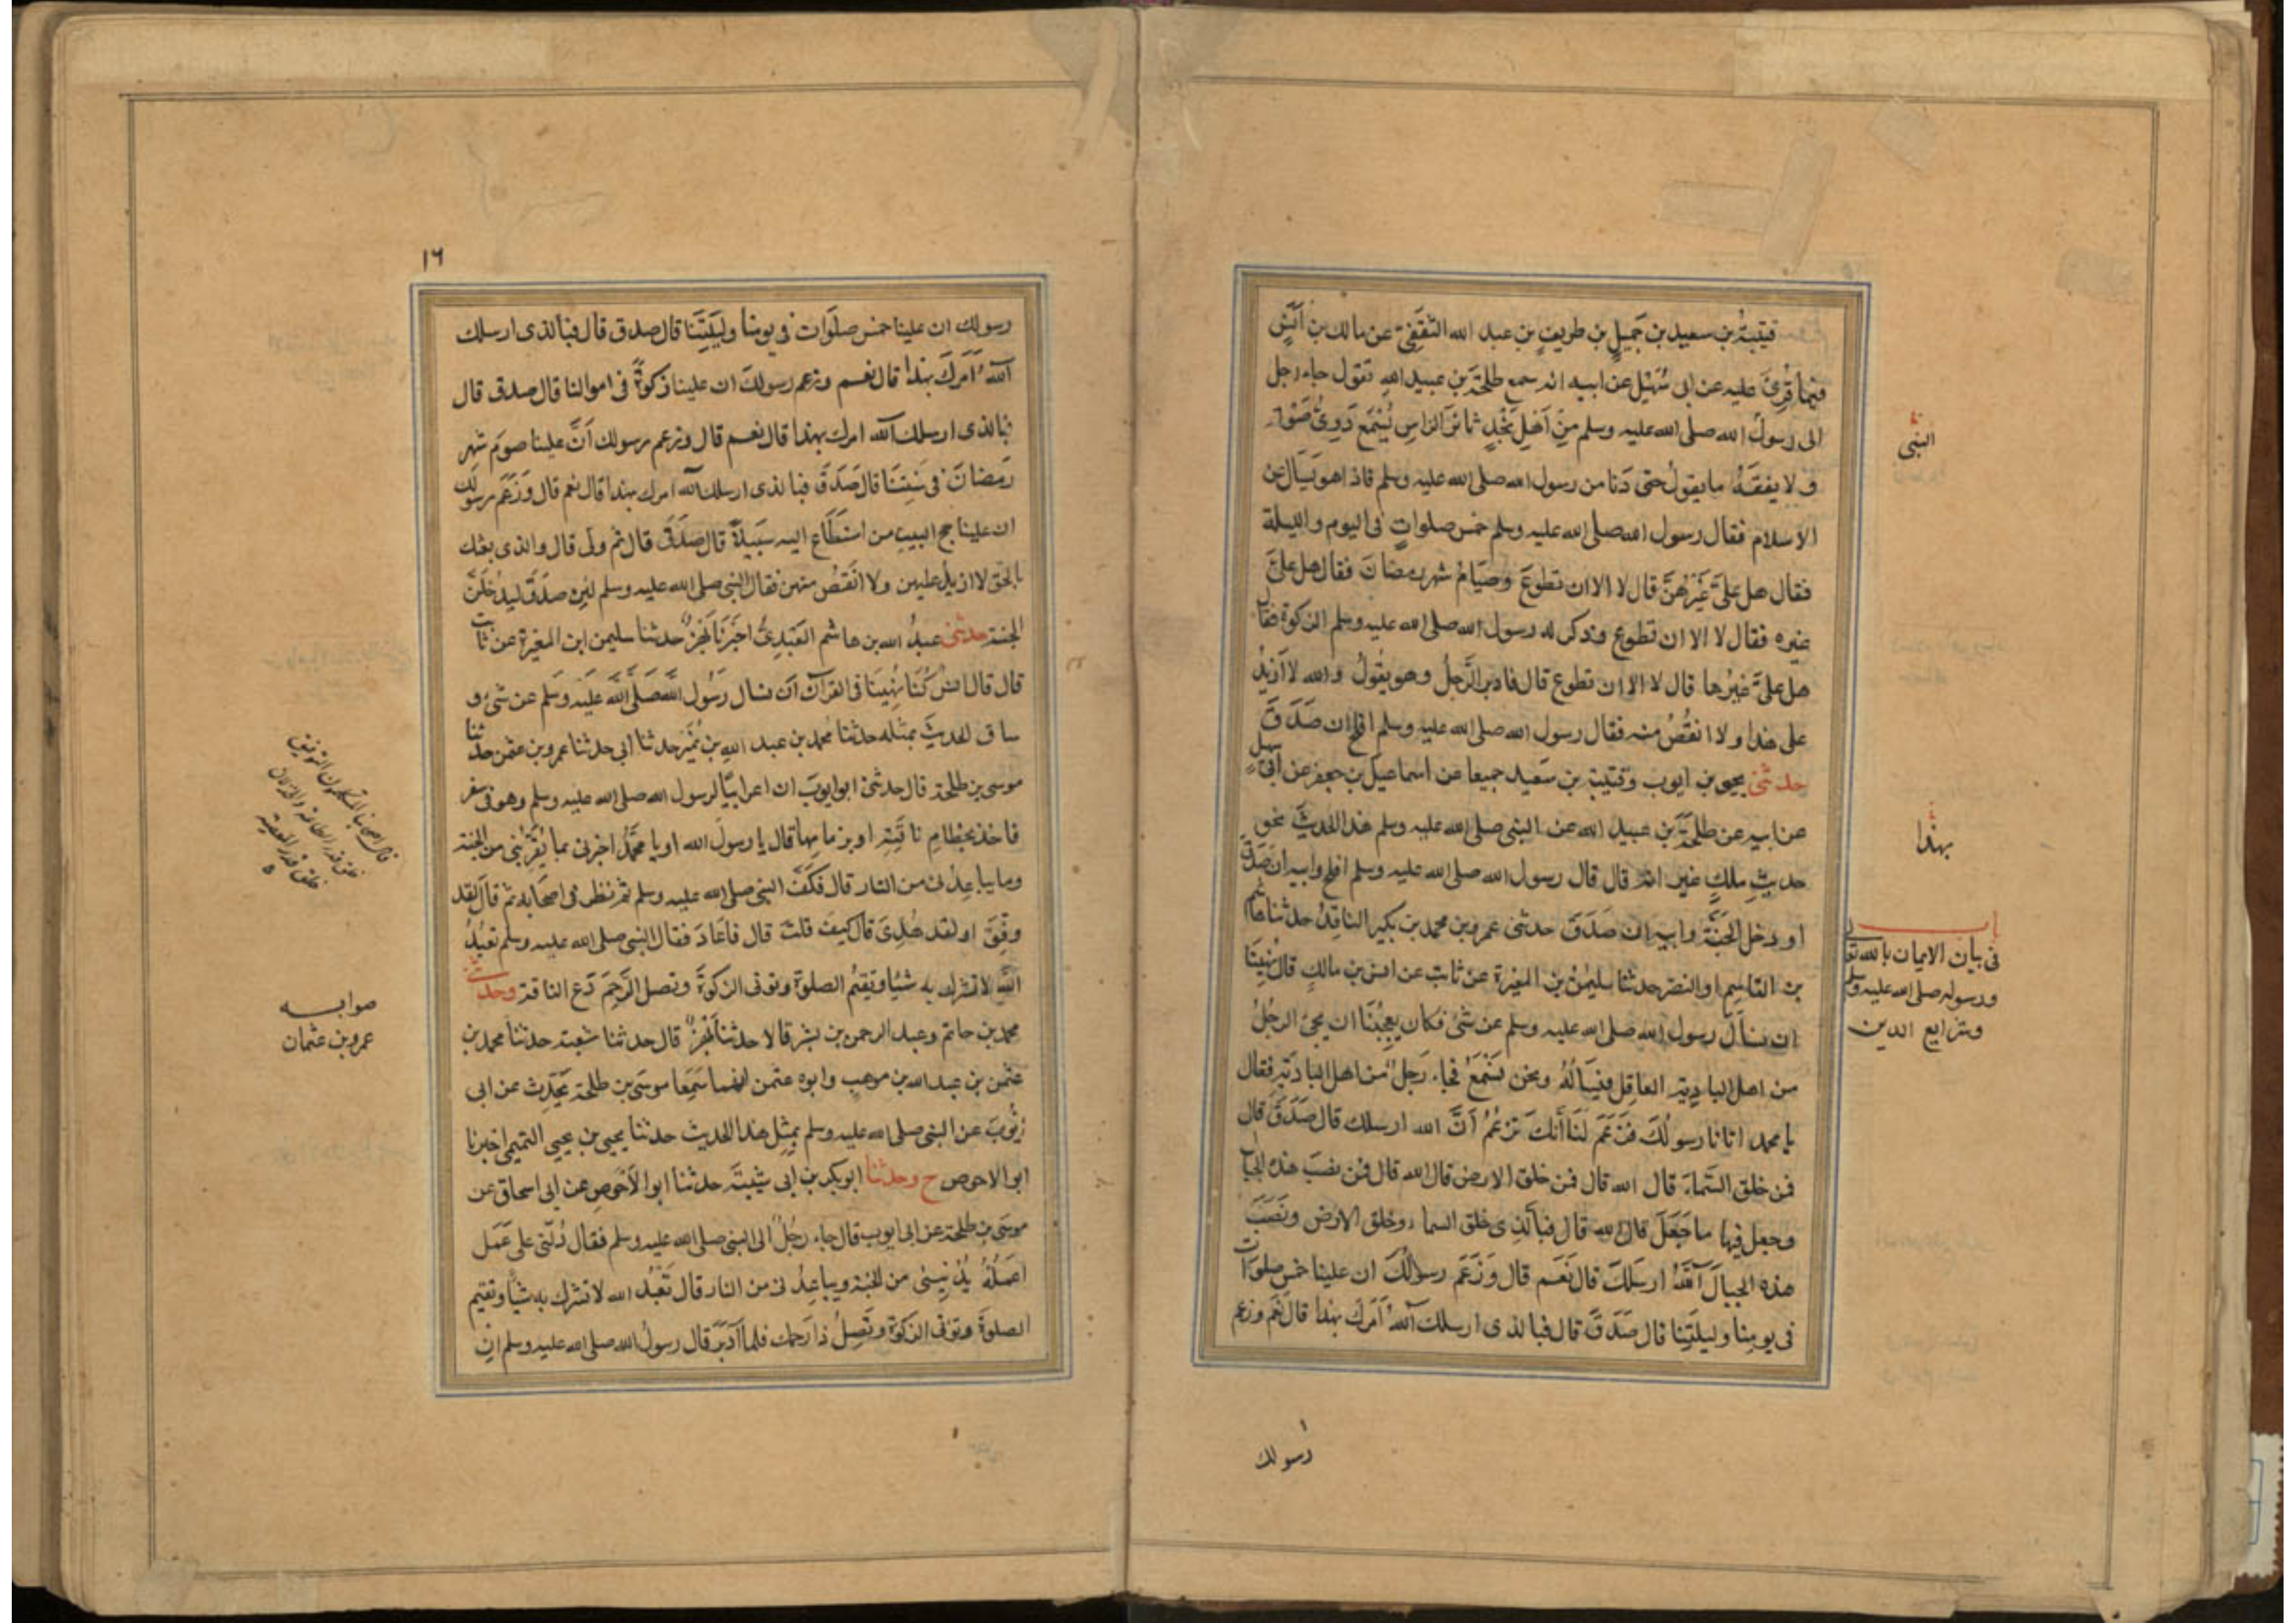 قتيبة بن سعيد بن جَمِيلِ بن طريفِ بن عبد الله الثقَفِىّ عن مالك بن اَنَسٍ
فيما قُرِئَ عليه عن ابى سُهَيْل عن ابيه انه سمع طلحة بن عبيد الله يقول جاء رجل
الى رسول الله صلى الله عليه وسلم مِن اَهْلِ نَجْدٍ ثائر الراسِ يُسْمَع دَوِىُّ صَوْته
و لا يفقَهُ ما يقول حتى دَنا من رسول الله صلى الله عليه وسلم فاذا هو يسال عن
الاسلام فقال رسول الله صلى الله عليه وسلم خمس صلواتٍ فى اليوم والليلة
فقال هل عَلىَّ غَيْرُهُنَّ قال لا الا ان تطوعَ وصيَامُ شهر رمضانَ فقال هل علىَّ
غيره فقال لا الا ان تطوع وذكر له رسول الله صلى الله عليه وسلم الزكوة فقال
هل علىَّ غيرُها قال لا الا ان تطوع قال فادبر الرَّجلُ وهو يقُولُ والله لا اَزيدُ
على هذا ولا انقُصُ منه فقال رسول الله صلى الله عليه وسلم افلح ان صَدَقَ
حدثنى يحيى بن ايوب وقتيبة بن سَعيد جميعا عن اسماعيل بن جعفر عن ابى سهيل
عن ابيه عن طلحَة بن عبيد الله عن النبى صلى الله عليه وسلم هذا الحديث نحو
حديثِ ملكٍ غير انه قال قال رسول الله صلى الله عليه وسلم افلح وابيه ان صَدَق
او دخل الجَنّةَ وابيه ان صَدَقَ حدثنى عمرو بن محمد بن بكير الناقدُ حدثنا هاشم
بن القاسِم ابو النضر حدثنا سليمٰنُ بن المغيرة عن ثابت عن انس بن مالكٍ قال نُهينَا
ان نسأل رسول الله صلى الله عليه وسلم عن شئ فكان يعجِبُنا ان يجئ الرجُلُ
من اهل البادِيةِ العاقِل فيسَالهُ ونحن نسْمَعُ فجاء رَجلُ من اهل البادَية فقال
يا محمد اتانا رسولُكَ فزَعَمَ لَنَا أنَّكَ تزعُمُ اَنَّ الله ارسلك قال صَدَقَ قال
فمن خلق السَّماءَ قال الله قال فمن خلق الارض قال الله قال فمن نصبَ هذه الجبال
وجعل فيها ما جَعَلَ قال الله قال فبالَّذِى خلق السماء وخلق الارض ونَصَبَ
هذه الجبالَ آللهُ ارسَلَكَ قال نعَم قال وَزَعَمَ رسولُكَ ان علينا خمس صلوَات
فى يومِنا وليلتِنا قال صَدَقَ قال فبالذى ارسلك آللهُ اَمَرَكَ بهذا قال نَعَم وزعم
النبى
بهذا
باب
فى بيان الايمان بالله تعالى
ورسوله صلى الله عليه وسلم
وشرايع الدين
رسولك
١٦
رسولك ان علينا خمس صلَوات فى يومنا ولَيلَتِنَا قال صدق قال فبالذى ارسلك
آللهُ اَمَرَكَ بهذا قال نعم وزعم رسولك ان علينا زكوةً فى اموالنا قال صدق قال
فبالذى ارسلك آلله امرك بهذا قال نعم قال وزعم رسولك اَنَّ علينا صومَ شهر
رَمضانَ فى سَنتِنَا قال صَدَقَ فبالذى ارسلك آلله امرك بهذا قال نعم قال وزَعَمَ رسولك
ان علينا حج البيتِ من استَطَاع اليه سَبيلاً قال صَدَقَ قال ثم ولى قال والذى بعثك
بالحَقِ لا ازيدُ عليهن ولا انقُصُ منهن فقال النبى صلى الله عليه وسلم لئِن صدَقَ ليدخُلَنَّ
الجنة حدثنى عبدُ الله بن هاشم العَبْدِىُّ اخبَرَنَا بَهْزُ حدثنا سليمن ابن المغيرة عن ثابت
قال قال انسُ كُنّا نُهِينَا فى القرآن اَن نسال رَسُول اللهِ صَلَّى اللهُ عَلَيْه وَسَلم عن شئ و
ساق الحديثَ بمثله حدثنا محمد بن عبد الله بن نُمَيْر حدثنا ابى حدثنا عمرو بن عثمن حدثنا
موسى بن طلحة قال حدثنى ابو ايوبَ ان اعرابيًّا لرسول الله صلى الله عليه وسلم وهو فى سفر
فاخذ بخطامِ ناقتِه او بزمامها قال يا رسولَ الله او يا محمَّدُ اخبرنى بما يُقَرِّبُنى من الجنة
وما يباعِدُنى من النار قال فكَفَّ النبى صلى الله عليه وسلم ثم نظر فى اصحابه ثم قال لقد
وفِّقَ او لقد هُدِىَ قال كيفَ قلتَ قال فاعَادَ فقال النبى صلى الله عليه وسلم تعبُدُ
اللهَ لا تشرك به شيًا وتقيمُ الصلوة وتوتى الزكوةَ وتصل الرَّحِمَ دَعِ الناقة وحدثنى
محمد بن حاتم وعبد الرحمن بن بشر قالا حدثنا بَهزُ قال حدثنا شعبة حدثنا محمد بن
عثمن بن عبد الله بن موهب وابوه عثمن انهما سَمِعَا موسَى بن طلحة يحَدِّث عن ابى
اَيُّوبَ عن النبى صلى الله عليه وسلم بمِثلِ هذا الحديث حدثنا يحيى بن يحيى التميمى اخبرنا
ابو الاحوص ح وحدثنا ابو بكر بن ابى شَيْبَة حدثنا ابو الاَحْوَصِ عن ابى اسحاق عن
موسَى بن طلحة عن ابى ايوب قال جاء رَجُلٌ الى النبى صلى الله عليه وسلم فقال دُلّنى على عَمَل
اعمَلُهُ يُدْنِينى من الجنة ويباعِدُنى من النار قال تَعْبُدُ الله لا تشرك به شَيًا وتقيم
الصلوةَ وتؤتى الزكوةَ وتَصِلُ ذا رَحِمك فلما اَدْبَرَ قال رسولُ الله صلى الله عليه وسلم ان
قال اصحابنا المتكلمون التوفيق
خلق قدرة الطاعة والخذلان
خلق قدرة المعصية
صوابه
عمرو بن عثمان